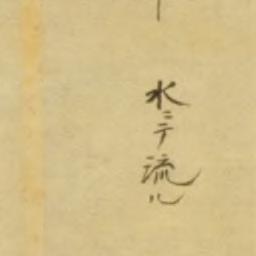 水ニテ流ル